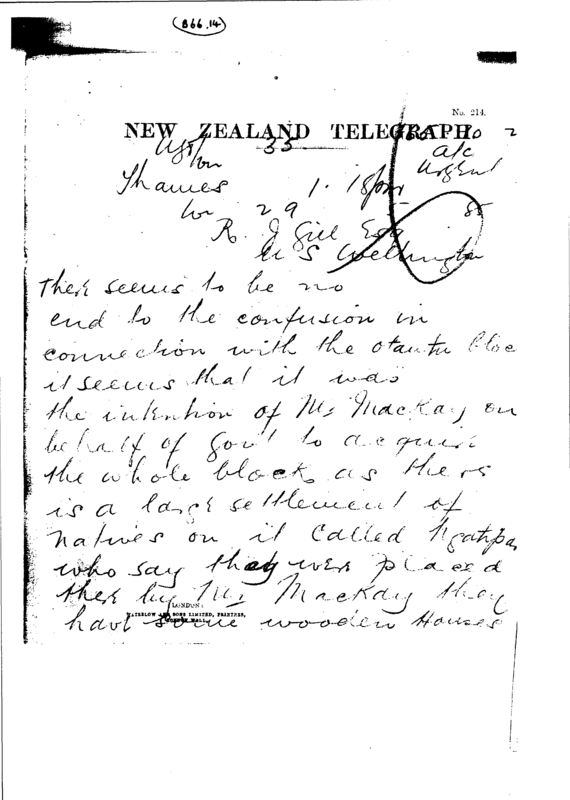 B66.14
No. 214.
NEW ZEALAND TELEGRAPH.
35
a/c
Urgent
Thames 1.18pm
29
R. J Gill Esq
U S Wellington
There seems to be no
end to the confusion in
connection with the Otautu Bloc
it seems that it was
the intention of Mr MacKay on
behalf of Govt to acquire
the whole block as there
is a large settlement of
natives on it called
who say they were placed
there by Mr MacKay they
have some wooden Houses
LONDON:
WATERLOW AND SONS LIMITED, PRINTERS,
LONDON WALL.